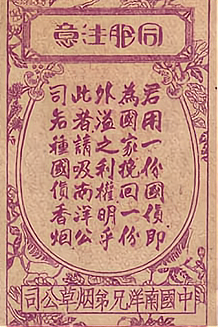 同胞注意
君用一份國貨即
為國家挽回一份
外溢之利權明乎
此者請吸南洋公
司各種國貨香烟
中國南洋兄弟烟草公司